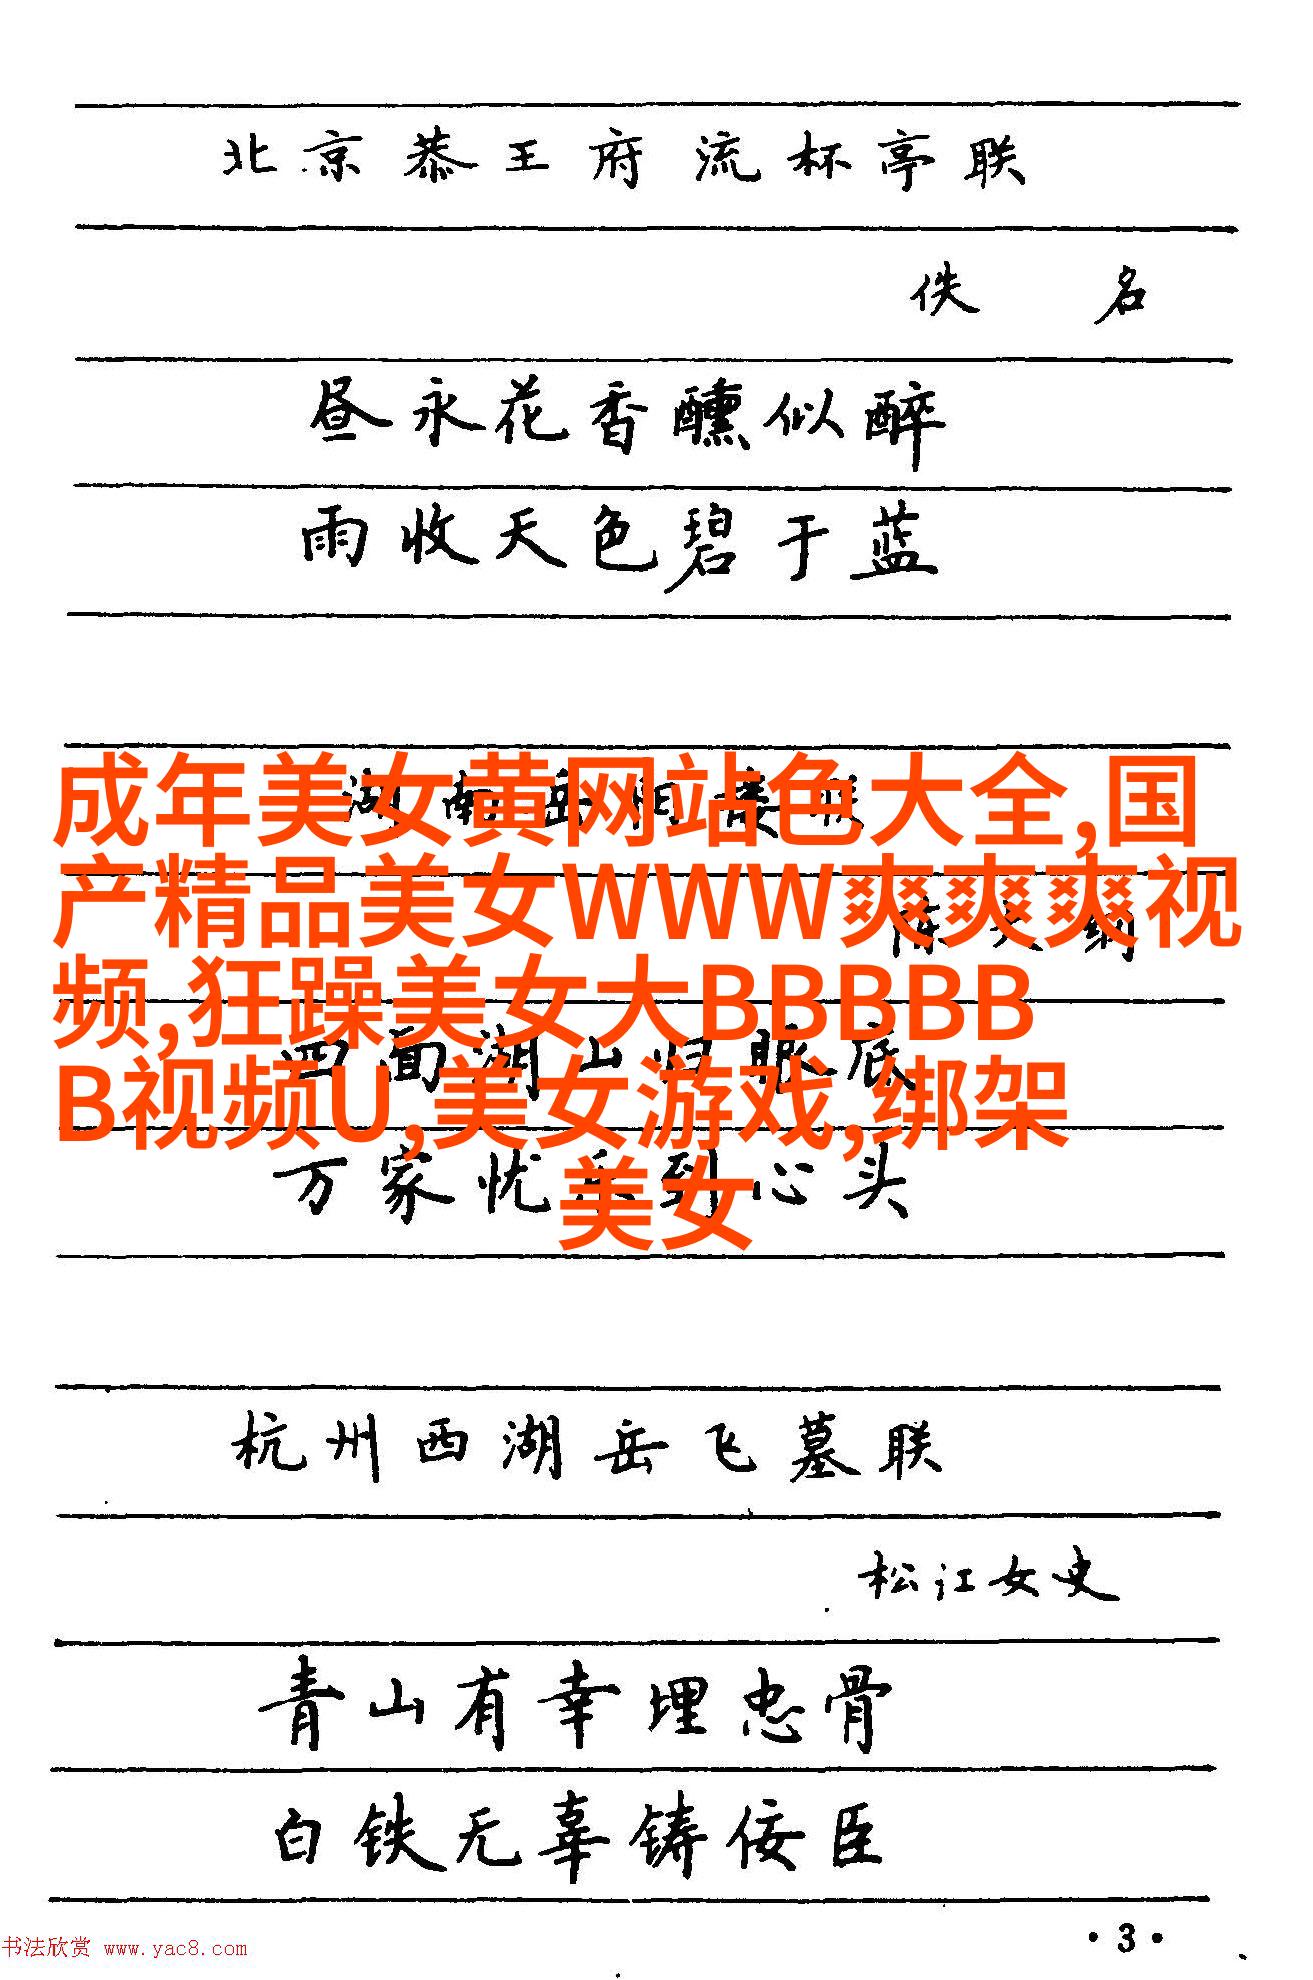 北京恭王府流杯亭联
佚名
昼永花香醺似醉
雨收天色碧于蓝
湖南岳阳楼联
成年美女黄网站色大全,国
产精品美女WWW爽爽爽视
频,狂躁美女大BBBBB
B视频U,美女游戏,绑架
美女
四面湖山归眼底
万家忧乐到心头
杭州西湖岳飞墓联
松江女史
青山有幸埋忠骨
白铁无辜铸佞臣
·3·
书法欣赏 www.yac8.com